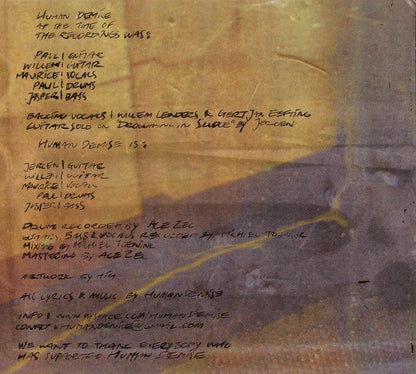 HUMAN DEMISE
AT THE TIME OF
THE RECORDINGS WAS:
PAUL | GUITAR
WILLEM | GUITAR
MAURICE | VOCALS
PAUL | DRUMS
JASPER | BASS
BACKING VOCALS | WILLEM LENDERS & GERTJAN
GUITAR SOLO ON "DROWNING IN SLUDGE" BY JEROEN
HUMAN DEMISE IS:
JEROEN | GUITAR
WILLEM | GUITAR
MAURICE | VOCALS
PAUL | DRUMS
JASPER | BASS
DRUMS RECORDED BY ACE ZEL
GUITARS, BASS & VOCALS RECORDED BY MICHIEL
MIXING BY MICHIEL
MASTERING BY ACE ZEL
ARTWORK BY TIM
ALL LYRICS & MUSIC BY HUMAN DEMISE
INFO @ WWW.MYSPACE.COM/HUMANDEMISE
CONTACT @ HUMANDEMISE@GMAIL.COM
WE WANT TO THANK EVERYBODY WHO
HAS SUPPORTED HUMAN DEMISE